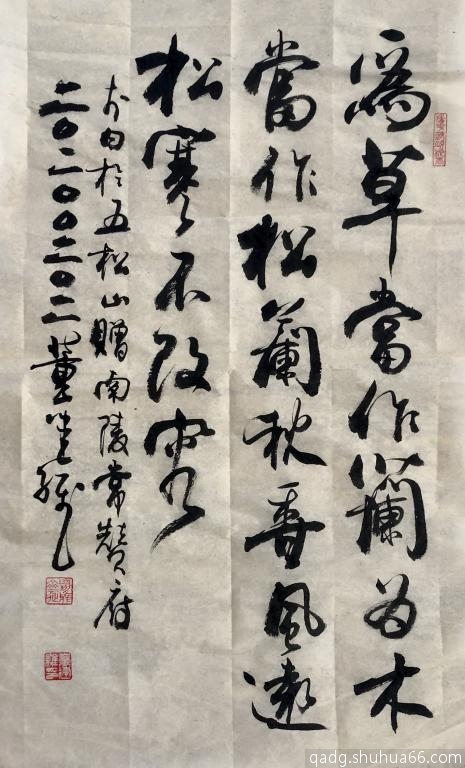 為草當作蘭为木
當作松蘭秋香風遠
松寒不改容
李白於五松山贈南陵常贊府
二〇二〇〇二〇二董
qadg.shuhua66.com